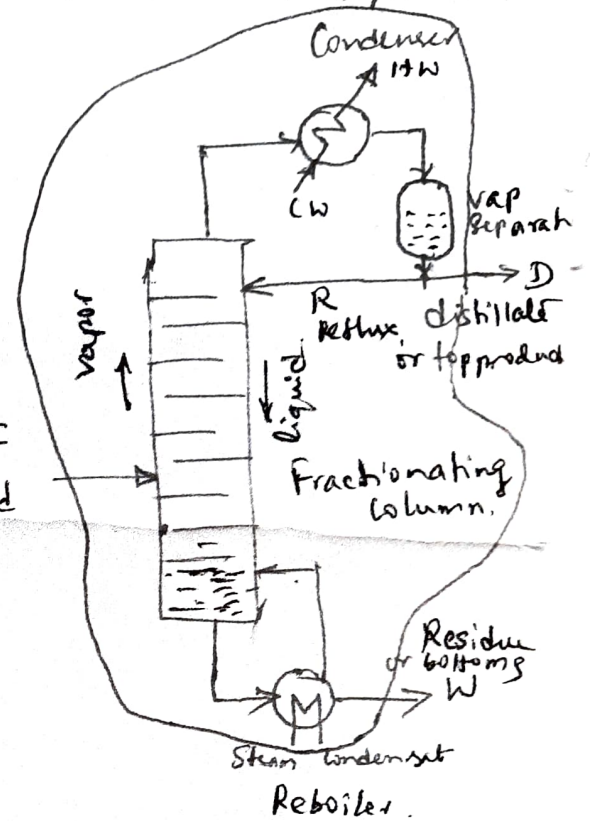 Condenser
HW
CW
vap
separat
D
R
Reflux
distillate
or top product
vapor
liquid
Fractionating
Column.
Residue
or bottoms
W
Steam Condensat
Reboiler.